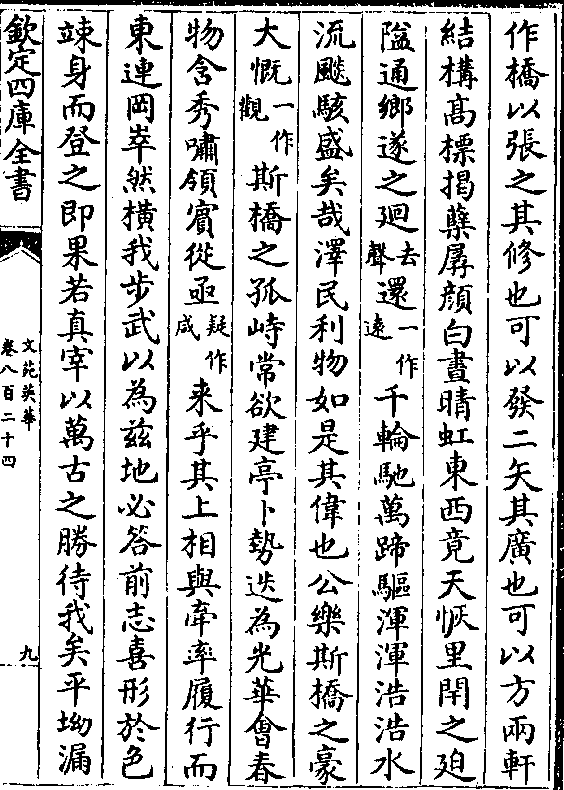 作橋以張之其修也可以發二矢其廣也可以方兩軒
結構髙標揭蘖孱顔白晝晴虹東西竟天恢里閈之廹
隘通鄉遂之廻去聲還一作遠千輪馳萬蹄驅渾渾浩浩水
流飈駭盛矣哉澤民利物如是其偉也公樂斯橋之豪
大慨一作觀斯橋之孤峙常欲建亭卜勢迭為光華會春
物含秀嘯領賔從亟疑作咸來乎其上相與牽率履行而
東連岡崒然橫我步武以為兹地必答前志喜形於色
竦身而登之即果若真宰以萬古之勝待我矣平坳漏
欽定四庫全書
文苑英華
卷八百二十四
九